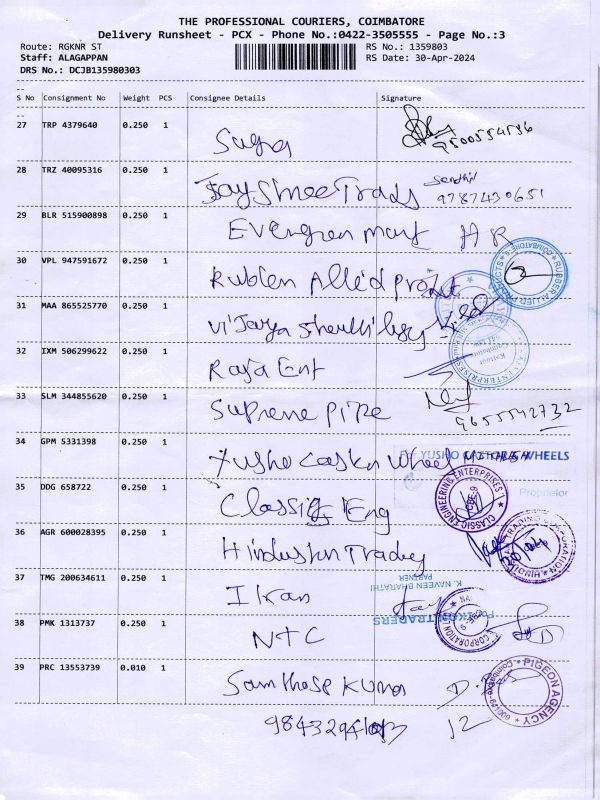 THE PROFESSIONAL COURIERS, COIMBATORE
Delivery Runsheet - PCX - Phone No.:0422-3505555 - Page No.:3
Route: RGKNR ST RS No.: 1359803
Staff: ALAGAPPAN RS Date: 30-Apr-2024
DRS No.: DCJB135980303
S No Consignment No Weight PCS Consignee Details Signature
27 TRP 4379640 0.250 1 Suga
9500554586
28 TRZ 40095316 0.250 1 Jay Shree Trads Senthil
9787430651
29 BLR 515900898 0.250 1 Evergreen mart HR
30 VPL 947591672 0.250 1 Rubber Allied Prodt
RUBBER ALLIED PRODUCTS COIMBATORE
31 MAA 865525770 0.250 1 Vijaya
32 IXM 506299622 0.250 1 Raja Ent
ENTERPRISES
33 SLM 344855620 0.250 1 Supreme Pipe
9655542732
34 GPM 5331398 0.250 1 Yusho Caster Wheel
For YUSHO CASTOR WHEELS
Proprietor
35 DDG 658722 0.250 1 Classic Eng
CLASSIC ENGINEERING ENTERPRISES CBE-9
36 AGR 600028395 0.250 1 Hindustan Trading
HINDUSTAN TRADING CORPORATION
37 TMG 200634611 0.250 1 Ikran
K. NAVEEN BHARATHI
PARTNER
For IKON TRADERS
38 PMK 1313737 0.250 1 NTC
CORPORATION
39 PRC 13553739 0.010 1 Santhose Kumar
PIGEON AGENCY Coimbatore
12